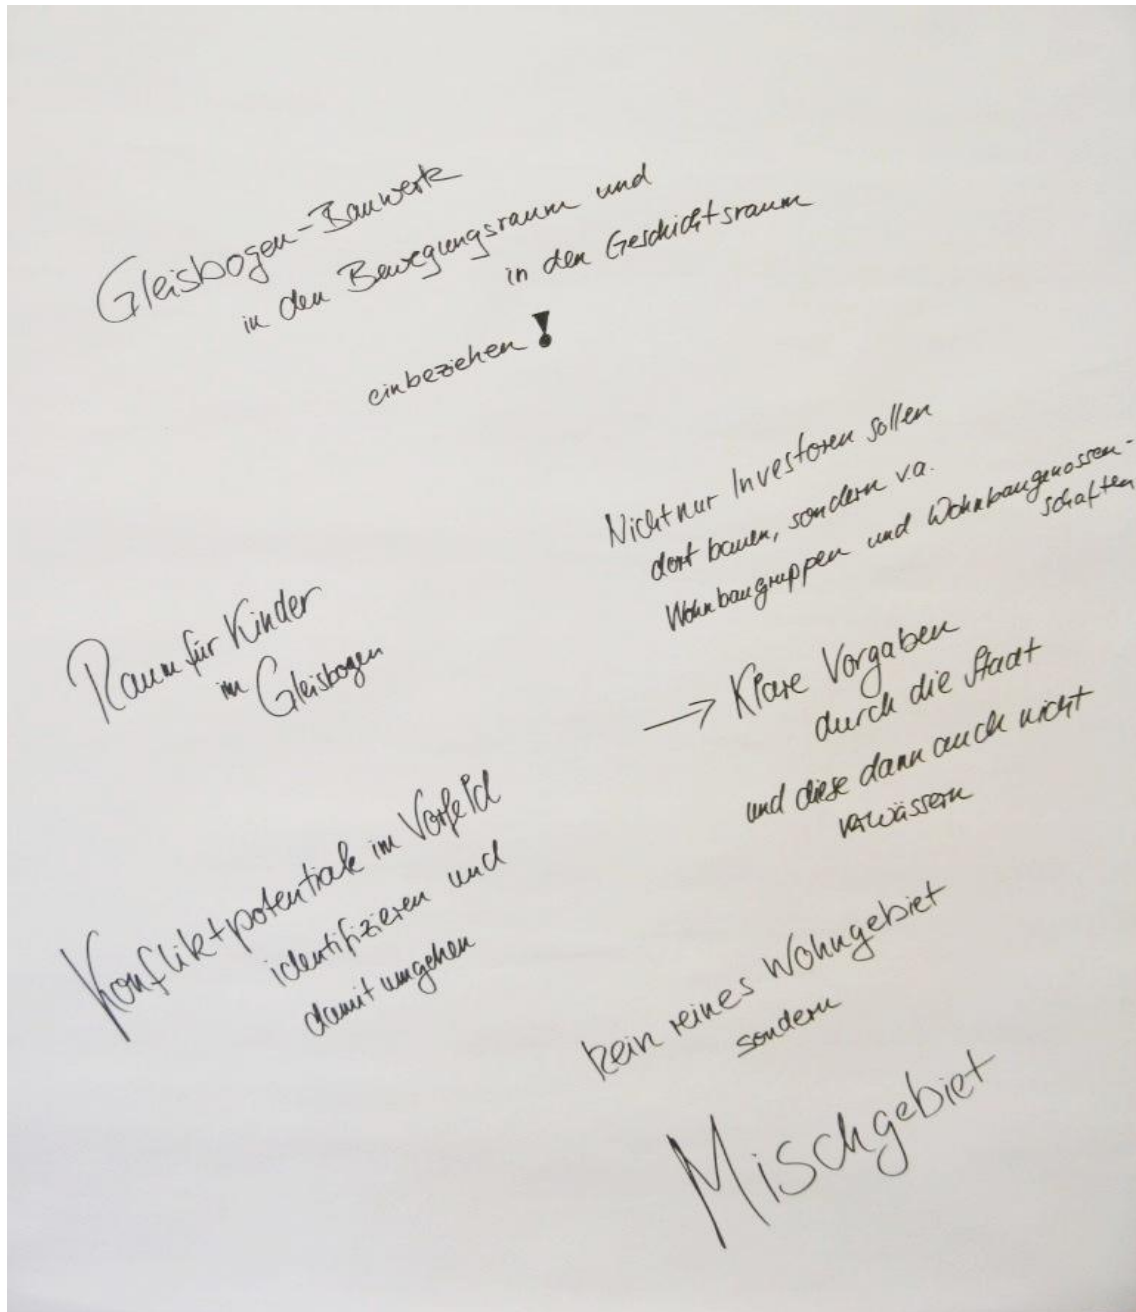 Gleisbogen-Bauwerk
in den Bewegungsraum und
in den Geschichtsraum
einbeziehen!
Nicht nur Investoren sollen
dort bauen, sondern v.a.
Wohnbaugruppen und Wohnbaugenossen-
schaften
→ Klare Vorgaben
durch die Stadt
und diese dann auch nicht
verwässern
Raum für Kinder
im Gleisbogen
Konfliktpotentiale im Vorfeld
identifizieren und
damit umgehen
kein reines Wohngebiet
sondern
Mischgebiet